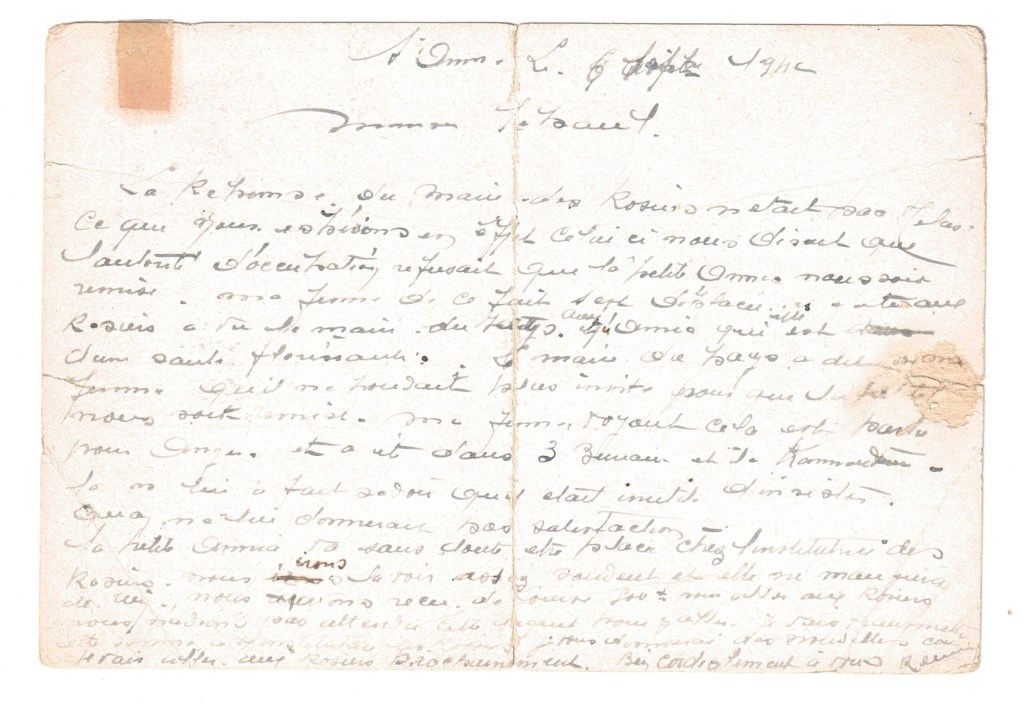 St Anne. Le. 6 Sept 1942
La Reponse du maire des Rosiers n'etait pas helas
Ce que nous esperions en effet celui ci nous disant que
l'autorité d'occupation refusait que la petite Annie nous soit
remise. ma femme de ce fait s'est déplacée aux
Rosiers a vu le maire du pays. Annie qui est
d'une sante florissante. Le maire du pays a dit a ma
femme qu'il ne pouvait plus insister pour que la petite
nous soit remise. Ma femme voyant cela est partie
pour Angers. et a été dans 3 Bureaux et à la Kommandantur
la on lui a fait savoir qu'il etait inutile d'insister.
qu'on ne lui donnerait pas satisfaction
la petite Annie va sans doute etre placée chez l'institutrice des
Rosiers. nous irons la voir assez souvent et elle ne manquera
de rien, nous avons recu de pour aller aux Rosiers
nous n'avions pas attendu cette argent pour y aller. Je vais
je vous donnerai des nouvelles car
Je vais aller aux Rosiers Prochainement. Bien cordialement à vous